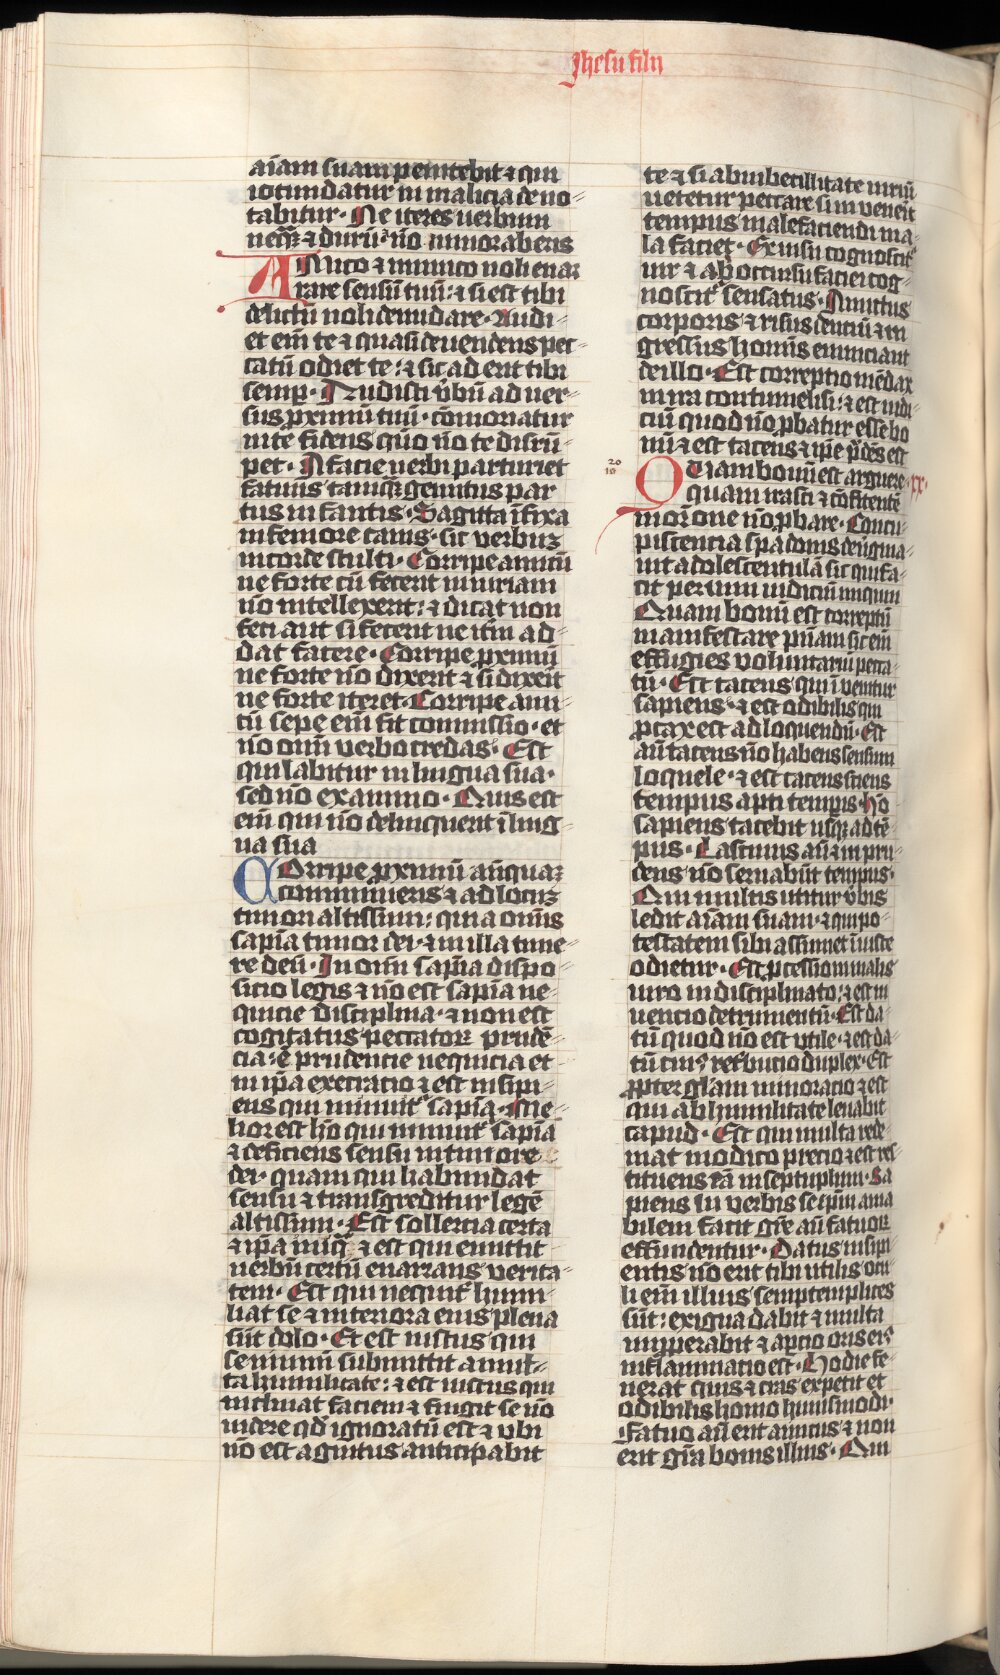 Jhesu filii
aīam suam penitebit ⁊ qui
iocundatur in malicia de no-
tabitur. Ne iteres uerbum
neq̄ȝ ⁊ durū ⁊ nō minoraberis
AMico ⁊ inimico noli enar
rare sensū tuū: ⁊ si est tibi
delictū noli denudare. Audi-
et em̄ te ⁊ quasi deuendens pec-
catū odiet te: ⁊ sic ad erit tibi
semp. Audisti v̄bū ad uer-
sus ꝓximū tuū. cōmoriatur
in te fidens qm̄o nō te disrū-
pet. A facie uerbi parturiet
fatuus tamqȝ gemitus par
tus infantis. Sagitta īfixa
in femore canis. sic verbuȝ
in corde stulti. Corripe amicū
ne forte cū fecerit iniuriam
nō intellexerit: ⁊ dicat non
feci aut si fecerit ne itm̄ ad-
dat facere. Corripe ꝓximū
ne forte nō dixerit ⁊ si dixeit
ne forte iteret. Corripe ami-
cū sepe em̄ fit commissio. et
nō omī verbo credas. Est
qui labitur in lingua sua.
sed nō ex animo. Quis est
em̄ qui nō deliquerit ī ling
ua sua
COrripe ꝓximū anȝquaȝ
comminueris ⁊ ad locuȝ
timori altissimi: quia om̄is
sapīa timor dei. ⁊ in illa time-
re deū. In om̄i sapīa dispo-
sicio legis ⁊ nō est sapīa ne-
quicie disciplina. ⁊ non est
cogitatus peccatoꝝ prudē-
cia: ē prudencie nequicia et
in ip̄a execracio ⁊ est insipi-
ens qui minuit͛ sapīa. Me-
lior est hō qui minuit͛ sapīa
⁊ deficiens sensu in timore
dei. quam qui habundat
sensu ⁊ transgreditur legē
altissimi. Est sollercia certa
⁊ ip̄a iniq̄ ⁊ est qui emittit
uerbū certū enarrans verita-
tem. Est qui nequit͛ humi-
liat se ⁊ interiora eius plena
sūt dolo. Et est iustus qui
se nimiū submittit a mul-
ta humilitate: ⁊ est iustus qui
inclinat faciem ⁊ fingit se nō
uidere qd̄ ignoratū est ⁊ vbi
nō est agnitus anticipabit
te ⁊ si ab inbecillitate uiriū
uetetur peccare si inuenerit
tempus malefaciendi ma-
la faciet. Ex uisu cognoscit͛
uir ⁊ ab occursu faciei cog-
noscit͛ sensatus. Amictus
corporis ⁊ risus denciū ⁊ in
gressus hominis enunciant
de illo. Est correptio mēdax
in ira contumeliosi: ⁊ est iudi
ciū quod nō ꝓbatur esse bo
nū ⁊ est tacens ⁊ ip̄e prudēs est
QUam bonū est arguere xx.
quam irasci ⁊ cōfitentē
in oracione nō ꝓhibere. Concu-
piscencia spadonis deuirgina-
uit adolescentulā sic qui fa-
cit per uim iudiciū iniquū
Quam bonū est correptū
manifestare pn̄iam sic em̄
effugies voluntariū pecca-
tū. Est tacens qui inuenitur
sapiens. ⁊ est odibilis qui
ꝓcax est ad loquendū. Est
aū tacens nō habens sensum
loquele. ⁊ est tacens sciens
tempus apti temporis. Hō
sapiens tacebit usqȝ ad tē-
pus. Lasciuus aū ⁊ inpru-
dens nō seruabūt tempus.
Qui multis utitur v̄bis
ledit aīam suam. ⁊ qui po-
testatem sibi assumet iniuste
odietur. Est ꝓcessio in malis
uiro indisciplinato: ⁊ est in
uencio detrimentū. Est da-
tū quod nō est vtile. ⁊ est da-
tū cui͛ retribucio duplex. Est
ꝓpter gl̄am minoracio ⁊ est
qui ab humilitate leuabit
capud. Est qui multa redi-
mat modico precio ⁊ est res-
tituens ea in septuplum. Sa
piens in verbis se ip̄m ama
bilem facit gr̄e aū fatuoꝝ
effundentur. Datus insipi-
entis nō erit tibi utilis ocu-
li em̄ illius septemplices
sūt: exigua dabit ⁊ multa
inproperabit ⁊ apercio oris ei͛
inflammacio est. Hodie fe-
nerat quis ⁊ cras expetit et
odibilis homo huiusmodi.
Fatuo aū erit amicus ⁊ non
erit gr̄a bonis illius. Qui